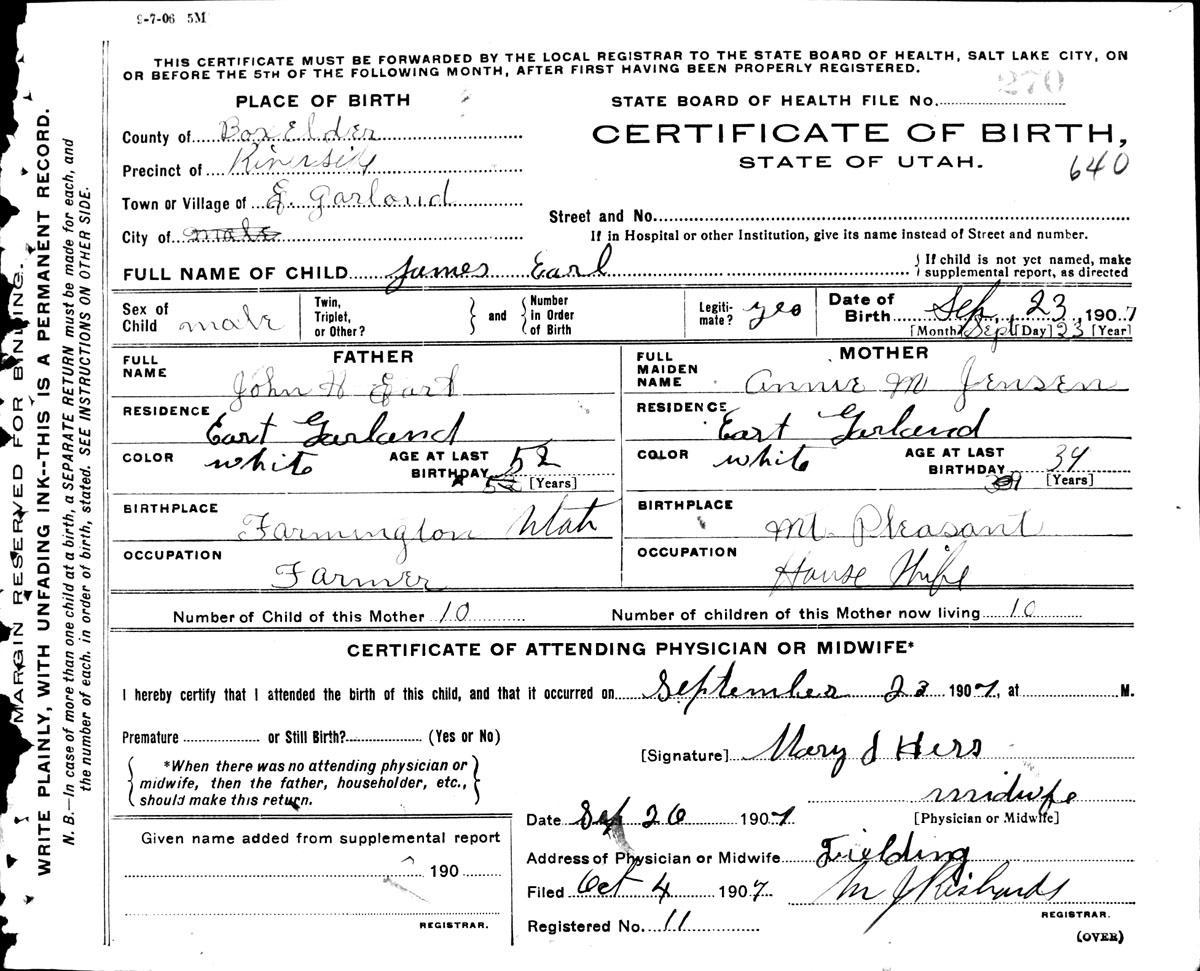 9-7-06 5M
THIS CERTIFICATE MUST BE FORWARDED BY THE LOCAL REGISTRAR TO THE STATE BOARD OF HEALTH, SALT LAKE CITY, ON
OR BEFORE THE 5TH OF THE FOLLOWING MONTH, AFTER FIRST HAVING BEEN PROPERLY REGISTERED.
270
PLACE OF BIRTH
STATE BOARD OF HEALTH FILE No.
County of Box Elder
CERTIFICATE OF BIRTH,
STATE OF UTAH.
640
Precinct of Riverside
Town or Village of E. Garland
Street and No.
City of male
If in Hospital or other Institution, give its name instead of Street and number.
FULL NAME OF CHILD James Earl
If child is not yet named, make
supplemental report, as directed
Sex of
Child male
Twin,
Triplet,
or Other?
and
Number
in Order
of Birth
Legiti-
mate? yes
Date of
Birth Sep. 23, 1907
[Month] Sept [Day] 23 [Year]
FATHER
FULL
NAME
John H Earl
RESIDENCE
East Garland
COLOR white
AGE AT LAST
BIRTHDAY 52
[Years]
BIRTHPLACE
Farmington Utah
OCCUPATION
Farmer
MOTHER
FULL
MAIDEN
NAME
Annie M Jensen
RESIDENCE
East Garland
COLOR white
AGE AT LAST
BIRTHDAY 34
[Years]
BIRTHPLACE
Mt. Pleasant
OCCUPATION
House Wife
Number of Child of this Mother 10
Number of children of this Mother now living 10
CERTIFICATE OF ATTENDING PHYSICIAN OR MIDWIFE*
I hereby certify that I attended the birth of this child, and that it occurred on September 23 1907, at M.
Premature or Still Birth? (Yes or No)
*When there was no attending physician or
midwife, then the father, householder, etc.,
should make this return.
[Signature] Mary J Hess
midwife
[Physician or Midwife]
Date Sep 26 1907
Address of Physician or Midwife Fielding
Filed Oct 4 1907 M J Richards
REGISTRAR.
Registered No. 11
(OVER)
Given name added from supplemental report
190
REGISTRAR.
MARGIN RESERVED FOR BINDING.
WRITE PLAINLY, WITH UNFADING INK--THIS IS A PERMANENT RECORD.
N. B.—In case of more than one child at a birth, a SEPARATE RETURN must be made for each, and
the number of each, in order of birth, stated. SEE INSTRUCTIONS ON OTHER SIDE.